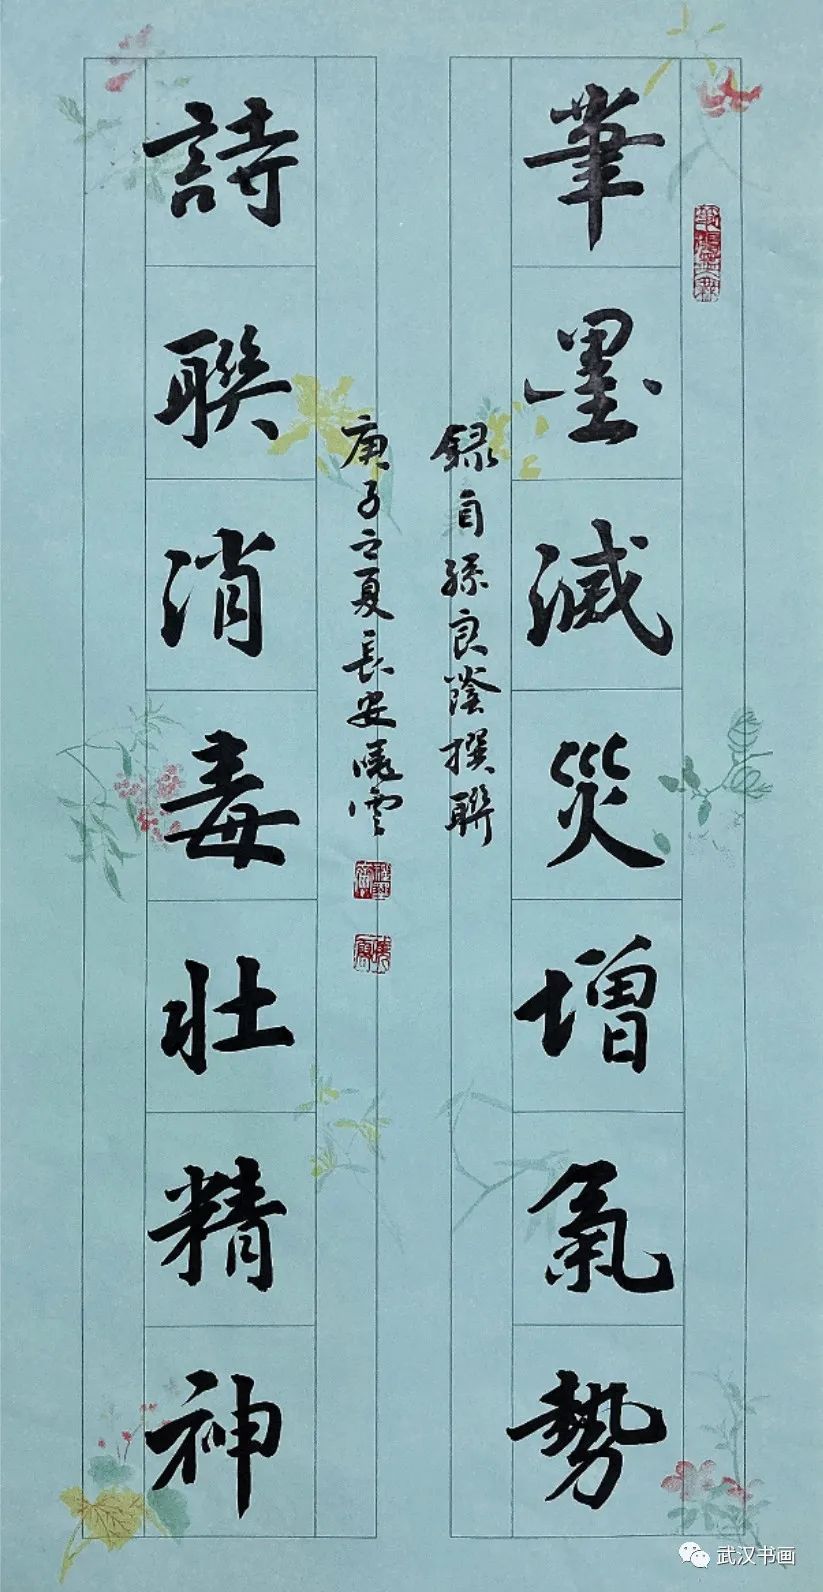 筆墨滅災增氣勢
録自孫良蔭撰聯
詩聯消毒壯精神
庚子之夏長安曉雲
武汉书画